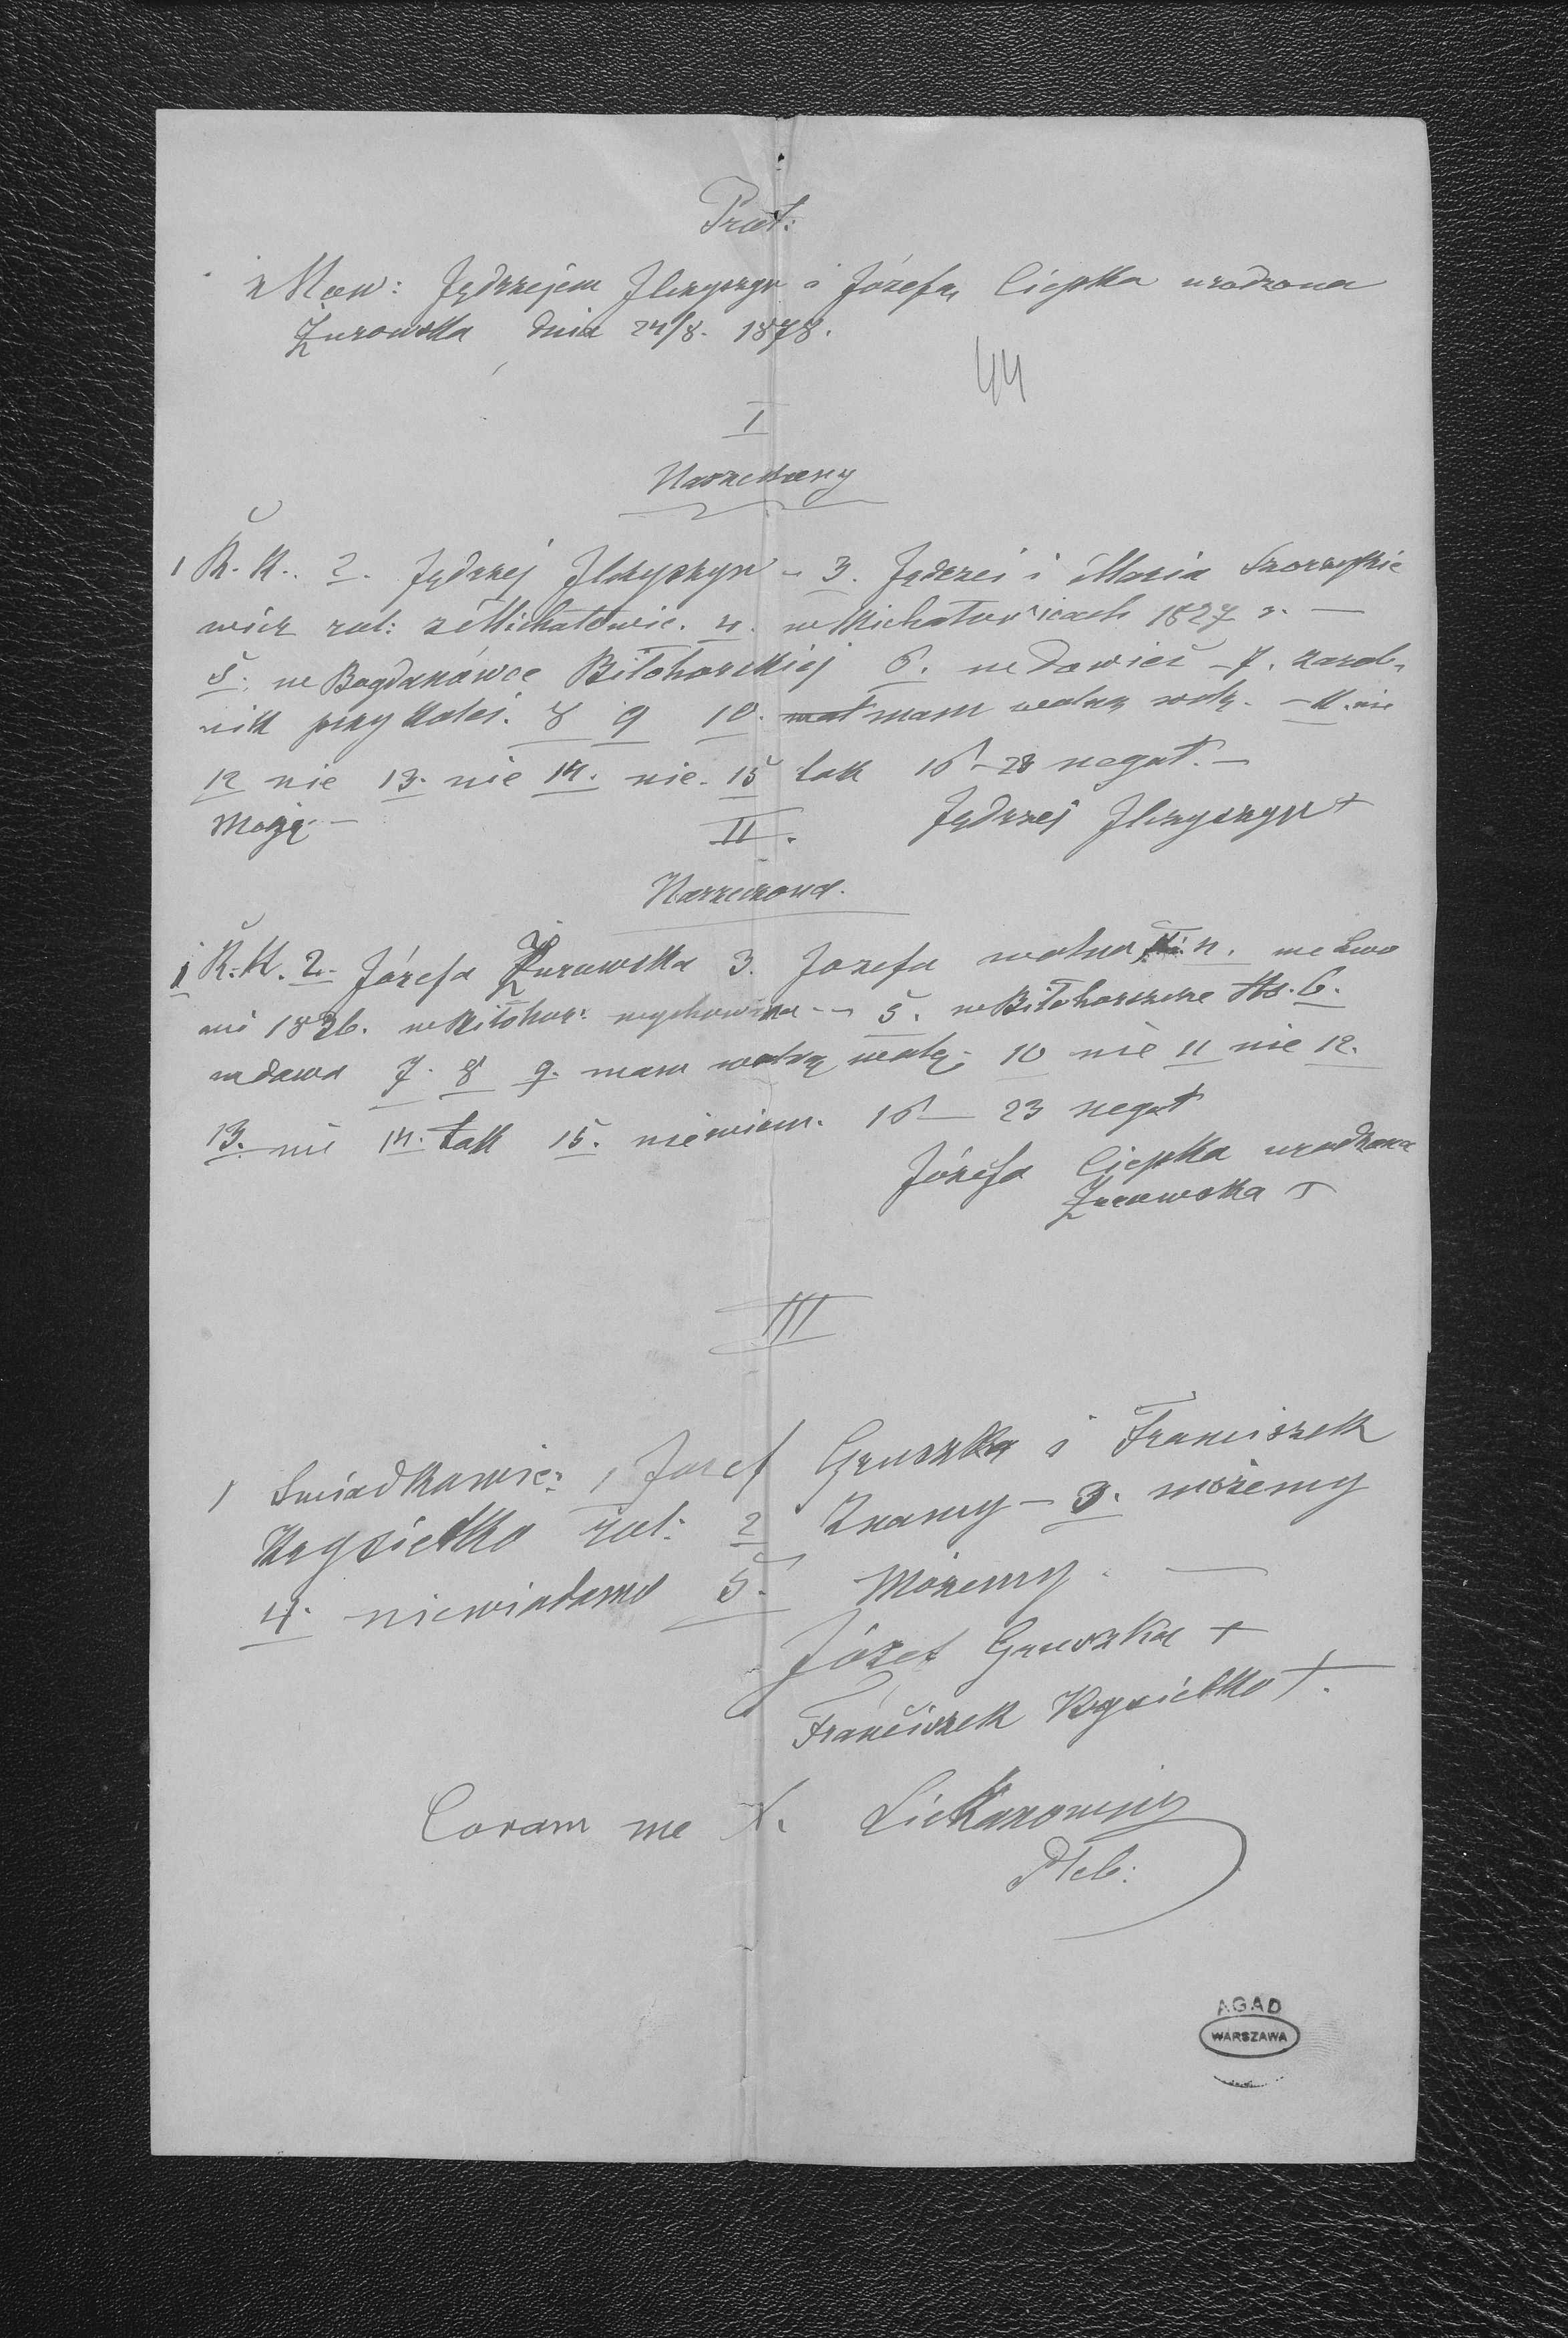 Prot:
z Now: Jędrzejem Ilczyszyn i Józefą Ciepka urodzona
Żurowska dnia 24/8. 1878.
44
I
Narzeczony
1 R. K. 2. Jędrzej Ilczyszyn - 3. Jędrzei i Maria
wicz rol: z Michałowic. 4. w Michałowicach 1827 r. —
5. na Bogdanówce Biłohorskiej 6. wdowiec - 7. zarob-
nik przy kolei. 8 9 10. mam wolną wolę. - 11. nie
12 nie 13. nie 14. nie. 15 tak 16 - 23 negat. -
Mogę. —
II.
Jędrzej Ilczyszyn +
Narzeczona.
1 R. K. 2. Józefa Żurowska 3. Jozefa wolna 4. we Lwo
wie 1836. w Biłohor: wychowana - 5. w Biłohorszcze No. 6.
wdowa 7. 8 9. mam wolną wolę. 10 nie 11 nie 12.
13. nie 14. tak 15. niewiem. 16 — 23 negat
Józefa Ciepka urodzona
Żurowska +
III
1 Swiadkowie: Jozef Gruszka i Franciszek
Kysiełko rol: 2 Znamy - 3. możemy
4. niewiadomo 5. Możemy. —
Józef Gruszka +
Franciszek Kysiełko +.
Coram me X.
Pleb:
AGAD
WARSZAWA